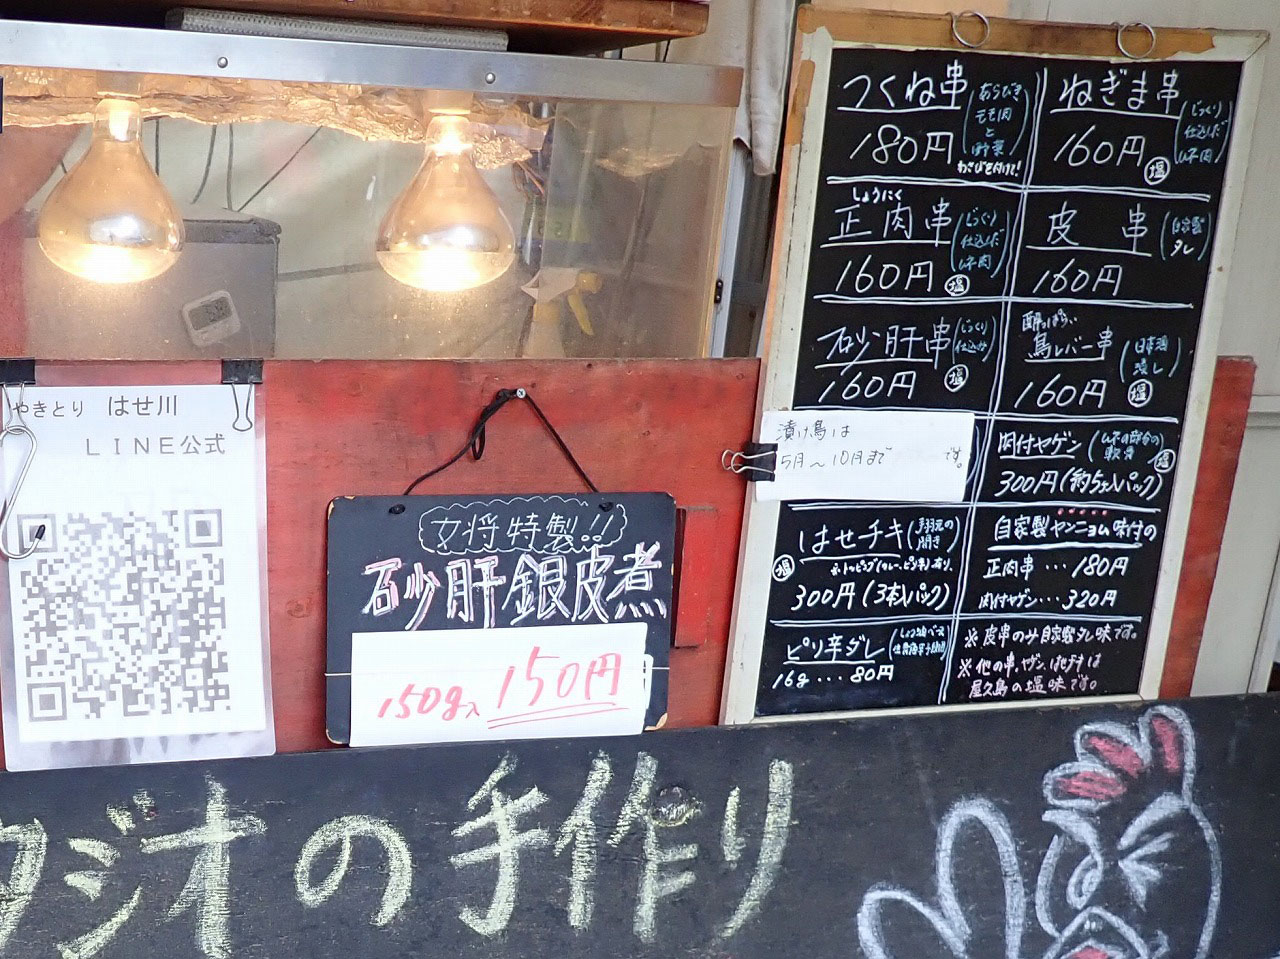 やきとり はせ川
LINE公式
女将特製!!
砂肝銀皮煮
150g入 150円
つくね串
あらびき
もも肉
と
野菜
180円
わさびを付けて!
ねぎま串
じっくり
仕込んだ
ムネ肉
160円 塩
しょうにく
正肉串
じっくり
仕込んだ
ムネ肉
160円 塩
皮串
自家製
タレ
160円
砂肝串
じっくり
仕込み
160円 塩
酔っぱらい
鳥レバー串
日本酒
漬し
160円 塩
漬け鳥は
5月~10月まで です。
肉付ヤゲン
ムネの部分の
軟骨
塩
300円(約5ヶ入パック)
はせチキ
手羽元の
開き
塩
300円(3本パック)
自家製ヤンニョム味付の
正肉串・・・180円
肉付ヤゲン・・・320円
ピリ辛ダレ
16g・・・80円
※皮串のみ自家製タレ味です。
※他の串、ヤゲン、はせチキは
屋久島の塩味です。
タジオの手作り